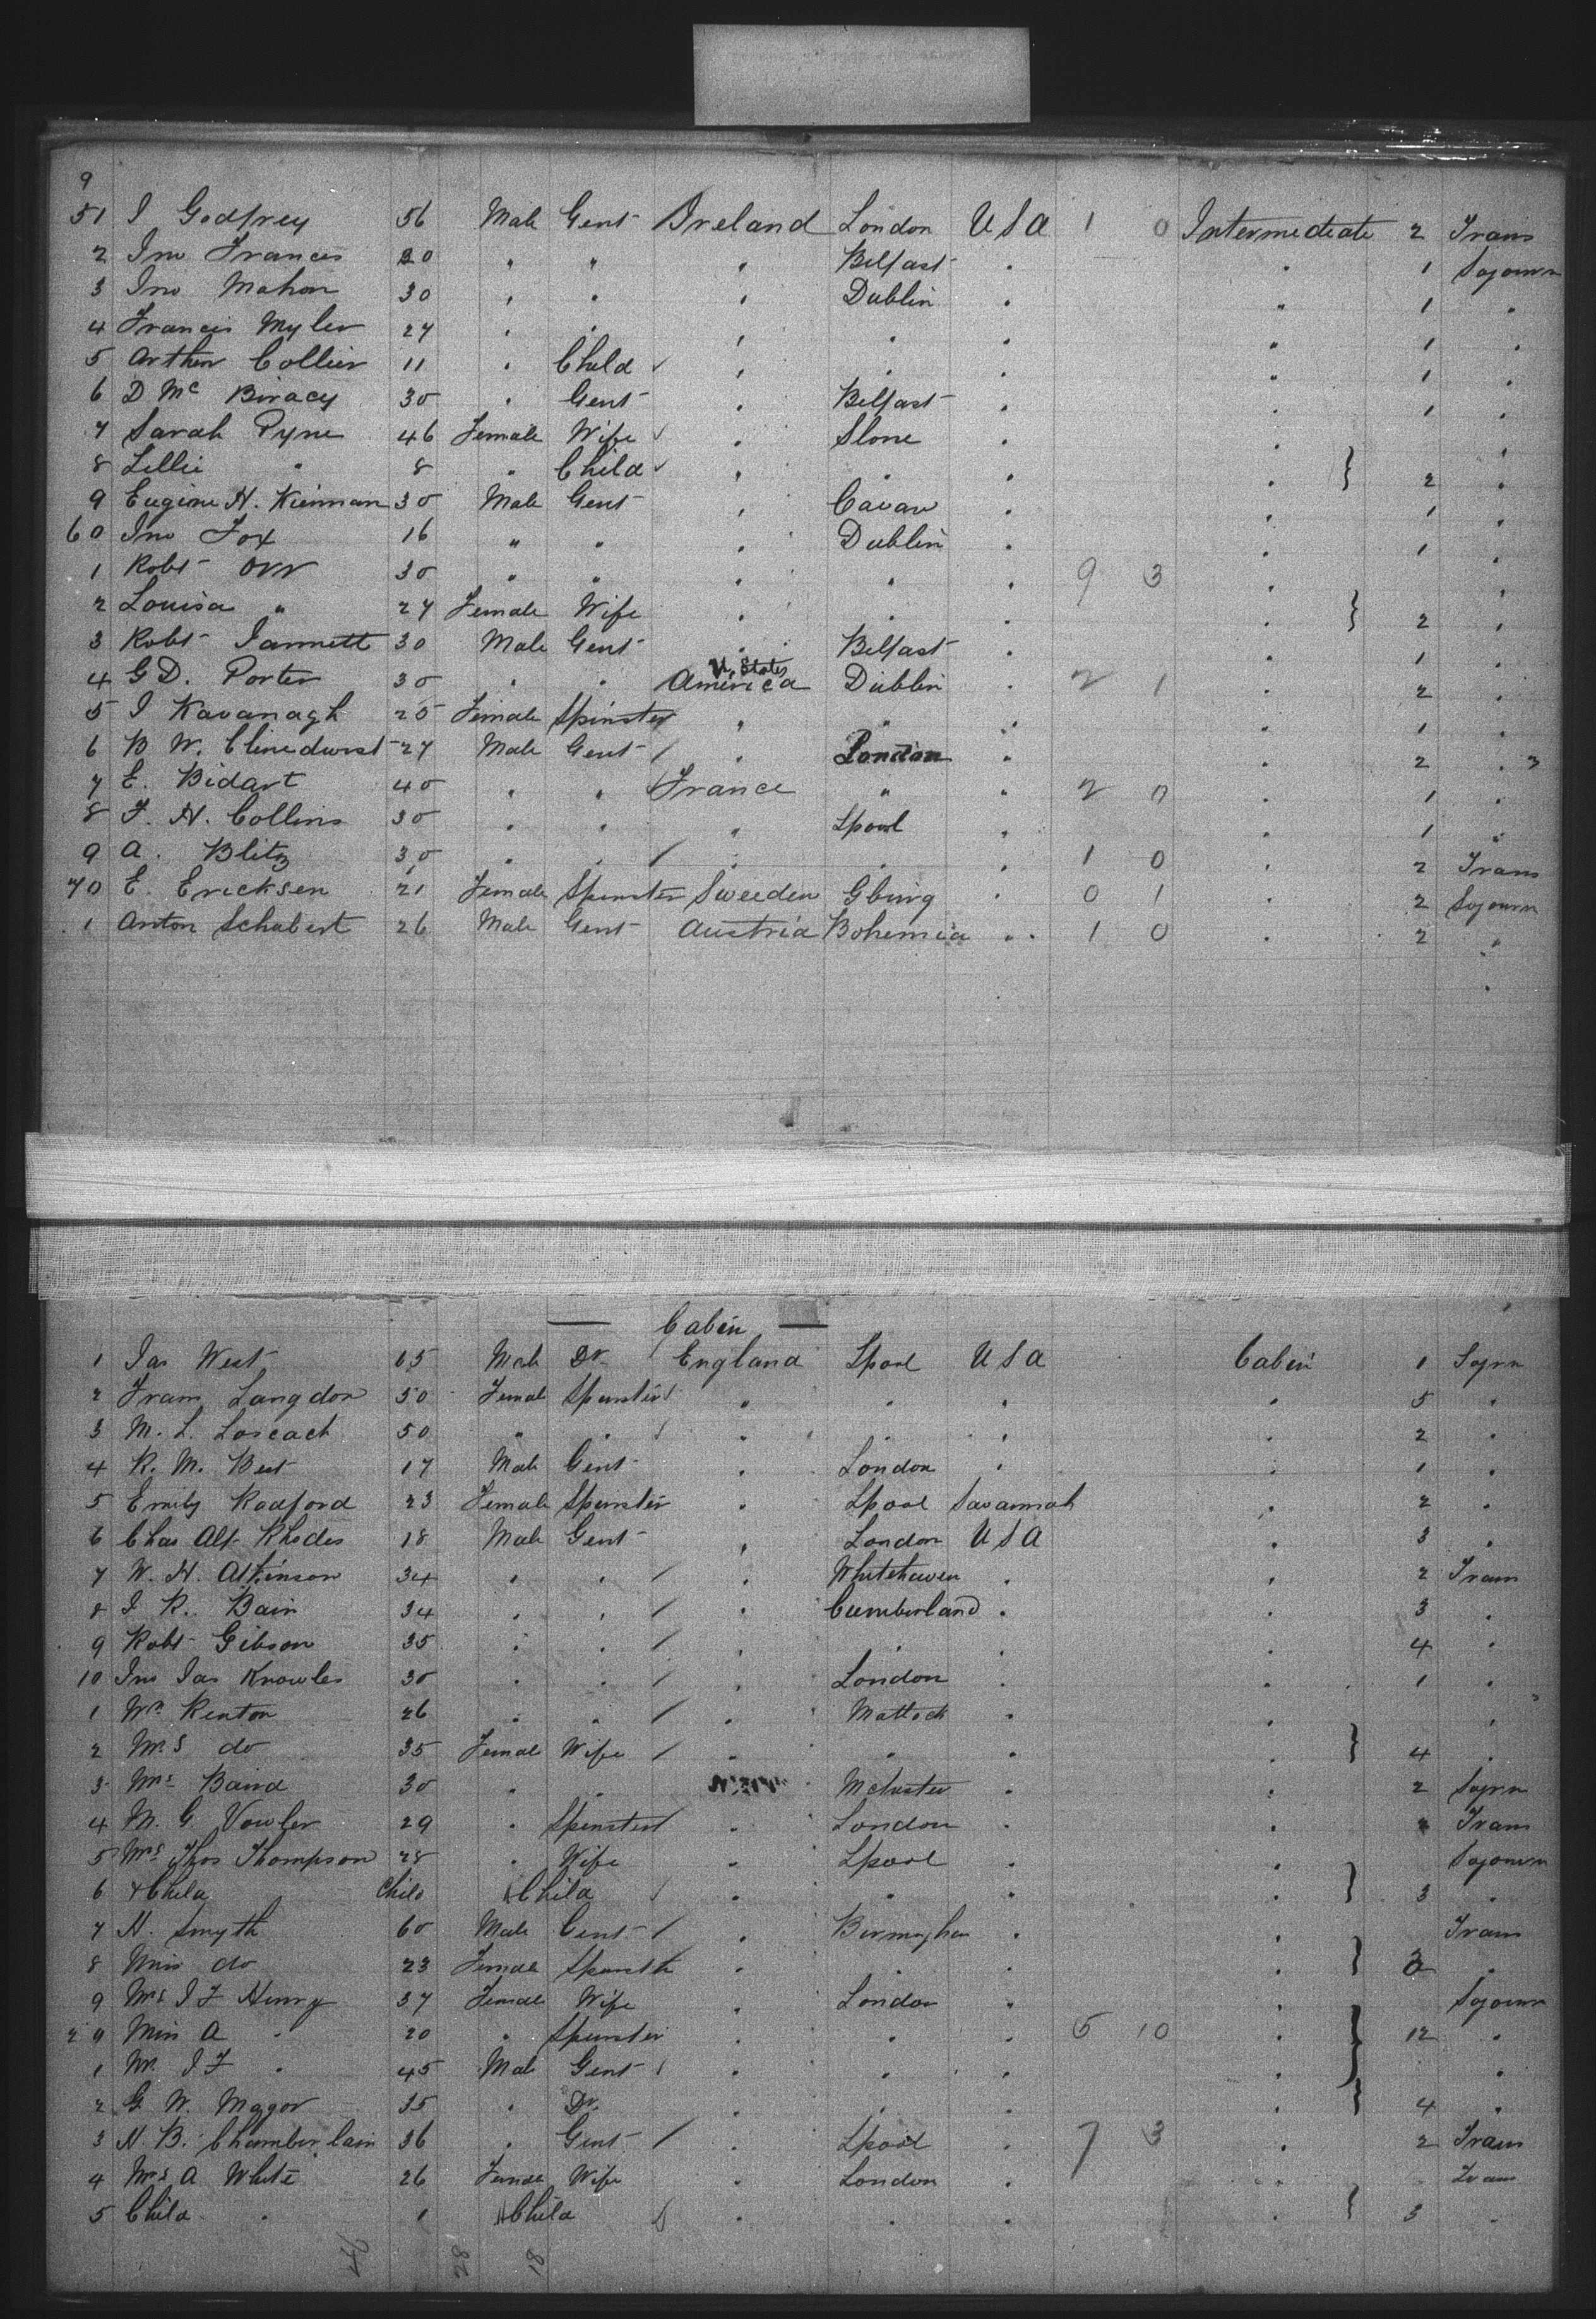 9
51 J Godfrey 56 Male Gent Ireland London USA 1 0 Intermediate 2 Trans
2 Jno Francis 20 " " " Belfast " " 1 Sojourn
3 Jno Mahon 30 " " " Dublin " " 1 "
4 Francis Myler 27 " " " " " " 1 "
5 Arthur Collier 11 " Child " " " " 1 "
6 D Mc 30 " Gent " Belfast " " 1 "
7 Sarah Pyne 46 Female Wife " Slone " " "
8 Lillie " 8 " Child " " " " } 2 "
9 Eugine H. Kiernan 30 Male Gent " Cavan " " 1 "
60 Jno Fox 16 " " " Dublin " " 1 "
1 Robt Orr 30 " " " " " 9 3 " "
2 Louisa " 27 Female Wife " " " " } 2 "
3 Robt Jannett 30 Male Gent " Belfast " " 1 "
4 G D. Porter 30 " " U. States America Dublin " 2 1 " 2 "
5 J Kavanagh 25 Female Spinster " " " " 1 "
6 B W. Clinedurst 27 Male Gent / " London " " 2 "
7 E. Bidart 40 " " France " " 2 0 " 1 "
8 F. H. Collins 30 " " " Lpool " " 1 "
9 A. Blitz 30 " " / " " " 1 0 " 2 Trans
70 E. Ericksen 21 Female Spinster Sweeden Gburg " 0 1 " 2 Sojourn
1 Anton Schubert 26 Male Gent Austria Bohemia " 1 0 " 2 "
— Cabin —
1 Jas West 65 Male Dr England Lpool USA Cabin 1 Sojrn
2 Langdon 50 Female Spinster " " " " 5 "
3 M. L. 50 " " " " " " 2 "
4 R. M. Best 17 Male Gent " London " " 1 "
5 Emily Radford 23 Female Spinster " Lpool Savannah " 2 "
6 Chas Alf. Rhodes 18 Male Gent " London USA " 3 "
7 W. H. Atkinson 34 " " / " Whitehaven " " 2 Trans
8 J R. Bain 34 " " / " Cumberland " " 3 "
9 Robt Gibson 35 " " / " " " " 4 "
10 Jno Jas Knowles 30 " " / " London " " 1 "
1 Wm Renton 26 " " / " Mattock " " "
2 Mrs do 35 Female Wife / " " " " } 4 "
3 Mrs Baird 30 " " Mchester " " 2 Sojrn
4 M. G. Vowler 29 " Spinster / " London " " Trans
5 Mrs Thos Thompson 28 " Wife " Lpool " " Sojourn
6 & Child Child Child " " " " } 3 "
7 H. Smyth 60 Male Gent / " Birmingham " " Trans
8 Miss do 23 Female Spinster " " " " } "
9 Mrs J F Henry 37 Female Wife " London " " Sojourn
20 Miss A " 20 " Spinster " " " 5 10 " } 12 "
1 Mr. J F " 45 Male Gent " " " " "
2 G. W. Magor 35 " Dr. " " " " } 4 "
3 H. B. Chamberlain 36 " Gent / " Lpool " 7 3 " 2 Trans
4 Mrs A White 26 Female Wife " London " " Trans
5 Child " 1 Child " " " " } 3 "
28 18